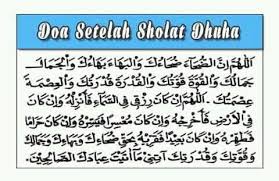 Doa Setelah Sholat Dhuha
اَللّٰهُمَّ اِنَّ الضُّحَآءَ ضُحَاءُكَ وَالْبَهَاءَ بَهَاءُكَ وَالْجَمَالَ
جَمَالُكَ وَالْقُوَّةَ قُوَّتُكَ وَالْقُدْرَةَ قُدْرَتُكَ وَالْعِصْمَةَ
عِصْمَتُكَ. اَللّٰهُمَّ اِنْ كَانَ رِزْقِى فِى السَّمَآءِ فَأَنْزِلْهُ وَاِنْ كَانَ
فِى الْاَرْضِ فَأَخْرِجْهُ وَاِنْ كَانَ مُعَسَّرًا فَيَسِّرْهُ وَاِنْ كَانَ حَرَامًا
فَطَهِّرْهُ وَاِنْ كَانَ بَعِيْدًا فَقَرِّبْهُ بِحَقِّ ضُحَاءِكَ وَبَهَاءِكَ وَجَمَالِكَ
وَقُوَّتِكَ وَقُدْرَتِكَ آتِنِى مَا اٰتَيْتَ عِبَادَكَ الصَّالِحِيْنَ.